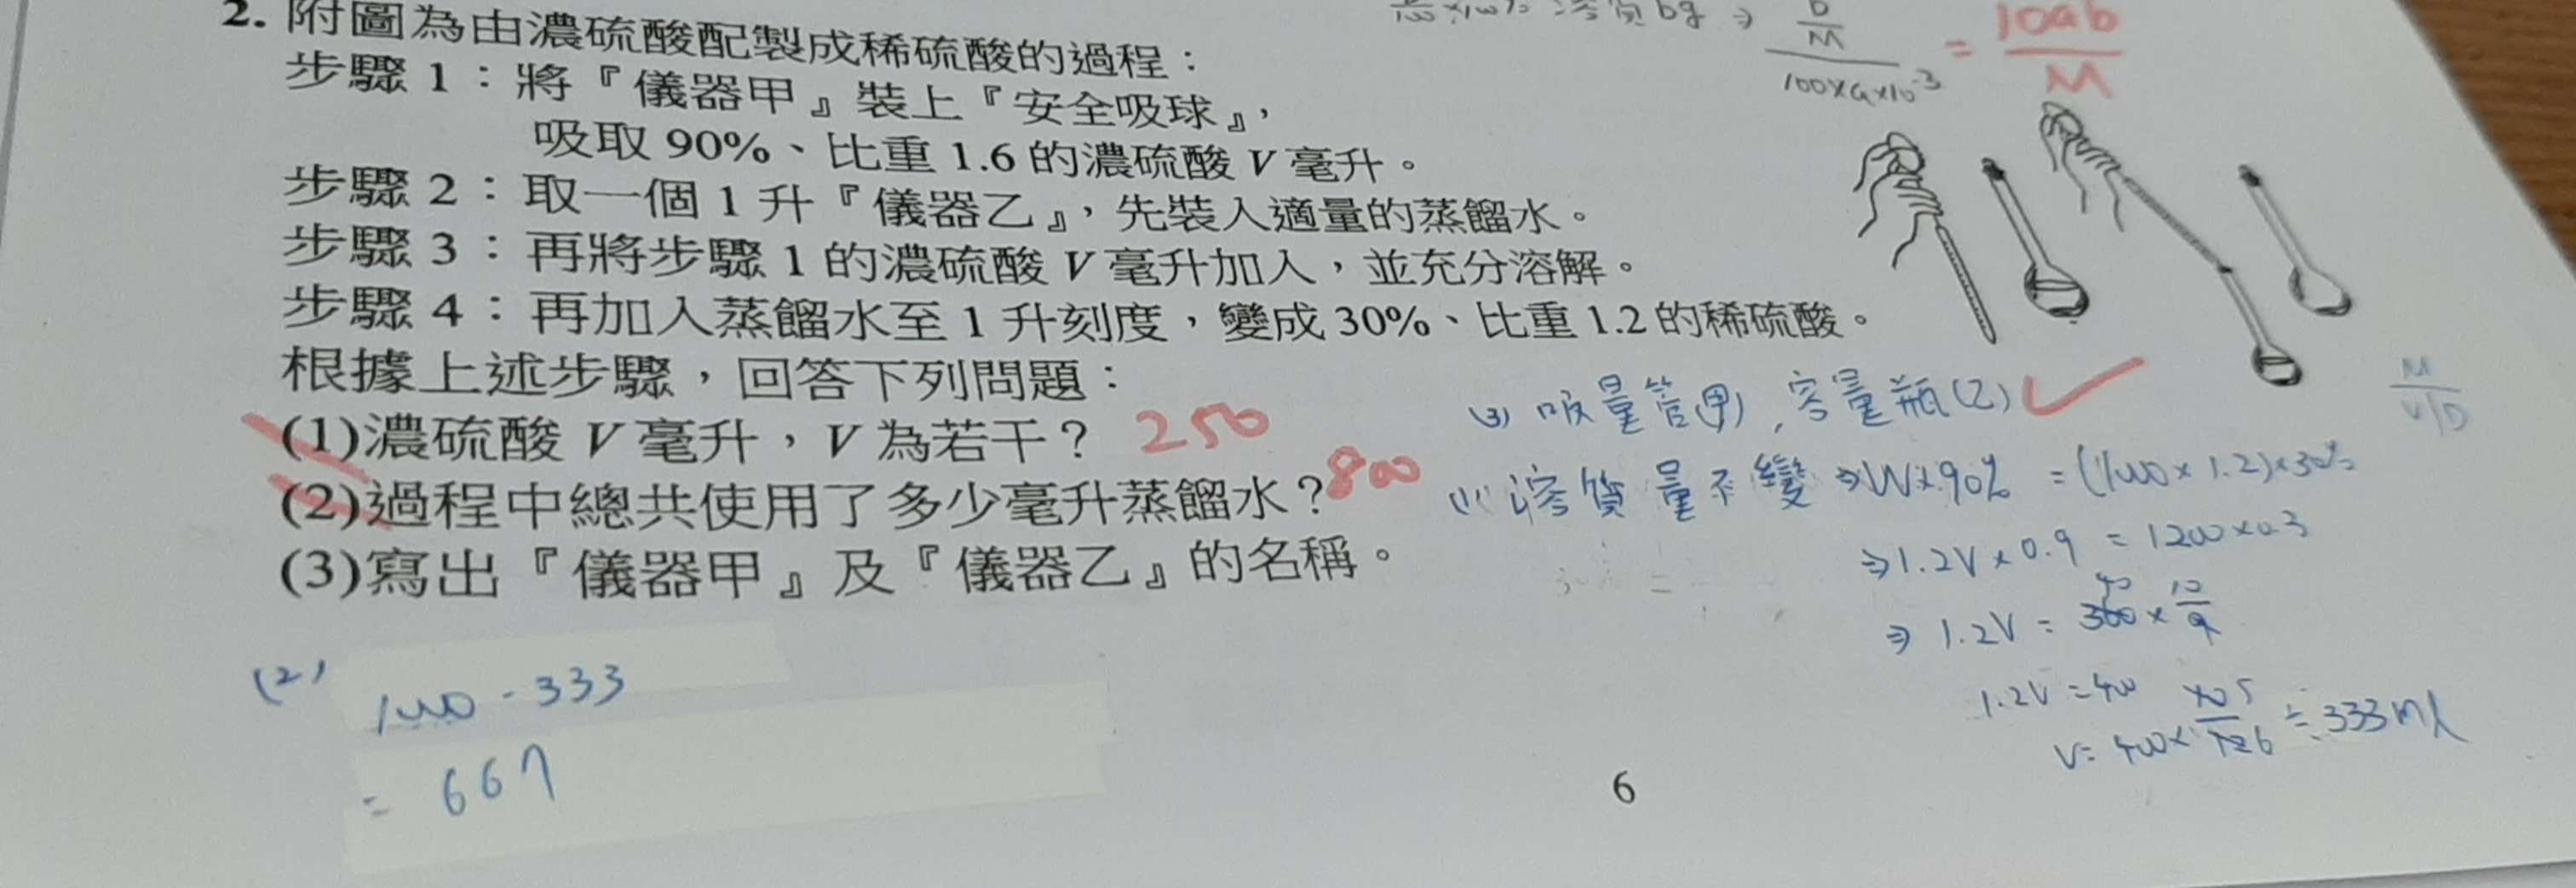 2. 附圖為由濃硫酸配製成稀硫酸的過程：
步驟 1：將『儀器甲』裝上『安全吸球』，
吸取 90%、比重 1.6 的濃硫酸 V 毫升。
步驟 2：取一個 1 升『儀器乙』，先裝入適量的蒸餾水。
步驟 3：再將步驟 1 的濃硫酸 V 毫升加入，並充分溶解。
步驟 4：再加入蒸餾水至 1 升刻度，變成 30%、比重 1.2 的稀硫酸。
根據上述步驟，回答下列問題：
(1)濃硫酸 V 毫升，V 為若干？ 250
(2)過程中總共使用了多少毫升蒸餾水？ 800
(3)寫出『儀器甲』及『儀器乙』的名稱。
b/M / 100×a×10⁻³ = 10ab/M
(3) 吸量管(甲), 容量瓶(乙)
M / V/D
(1) 溶質量不變 ⇒ W×90% = (1000×1.2)×30%
⇒ 1.2V × 0.9 = 1200×0.3
⇒ 1.2V = 360 × 10/9
1.2V = 400
V = 400× 10/12 ≒ 333 ml
(2) 1000 - 333
= 667
6